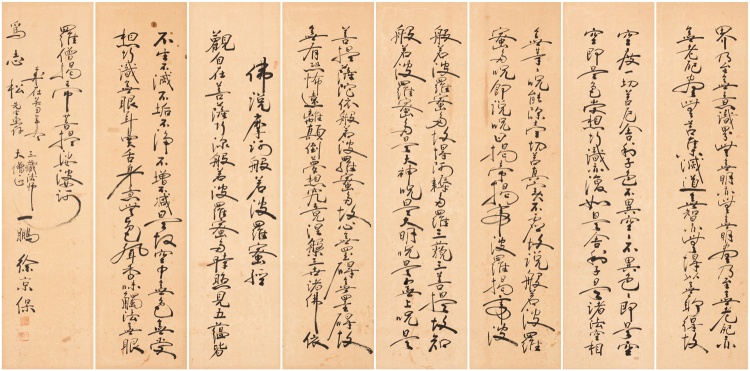 界乃至無意識界無無明亦無無明盡乃至無老死亦
無老死盡無苦集滅道無智亦無得以無所得故
空度一切苦厄舍利子色不異空空不異色色即是空
空即是色受想行識亦復如是舍利子是諸法空相
無等等呪能除一切苦真實不虛故說般若波羅
蜜多呪即說呪曰揭帝揭帝波羅揭帝波
般若波羅蜜多故得阿耨多羅三藐三菩提故知
般若波羅蜜多是大神呪是大明呪是無上呪是
菩提薩埵依般若波羅蜜多故心無罣碍無罣碍故
無有恐怖遠離顛倒夢想究竟涅槃三世諸佛依
佛說摩訶般若波羅蜜經
觀自在菩薩行深般若波羅蜜多時照見五蘊皆
不生不滅不垢不淨不增不減是故空中無色無受
想行識無眼耳鼻舌身意無色聲香味觸法無眼
羅僧揭帝菩提娑婆訶
為志松先生
三藏法師
大僧正
一鵬徐京保